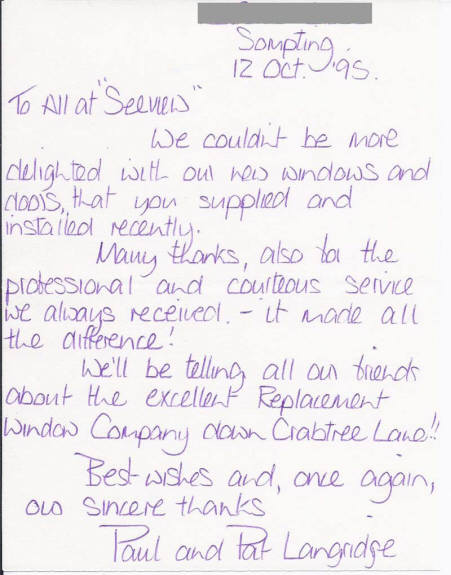 Sompting.
12 Oct. '95.
To All at "Seeview"
We couldn't be more
delighted with our new windows and
doors, that you supplied and
installed recently.
Many thanks, also for the
professional and courteous service
we always received. - it made all
the difference!
We'll be telling all our friends
about the excellent Replacement
Window Company down Crabtree Lane!!
Best wishes and, once again,
our sincere thanks
Paul and Pat Langridge